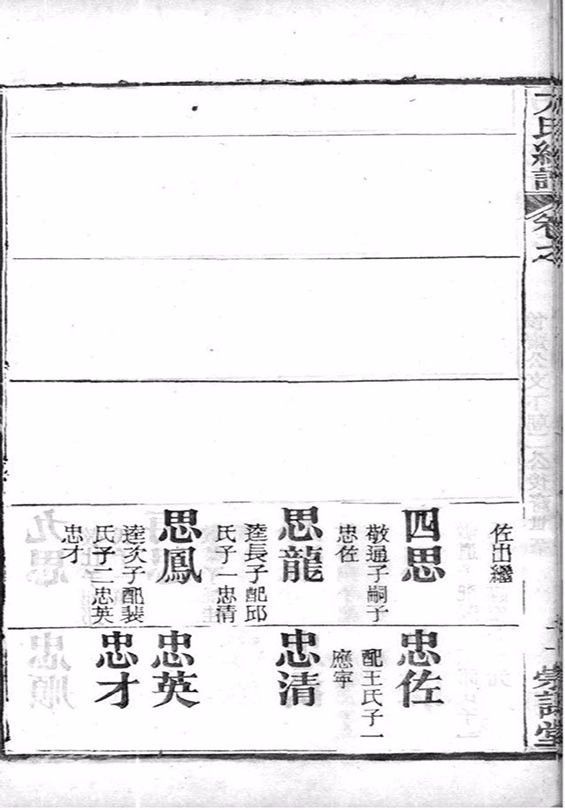 氏総譜
卷之
佐出繼
四思
敬通子嗣子
忠佐
思龍
逵長子配邱
氏子一忠清
思鳳
逵次子配裴
氏子二忠英
忠才
忠佐
配王氏子一
應寧
忠清
忠英
忠才